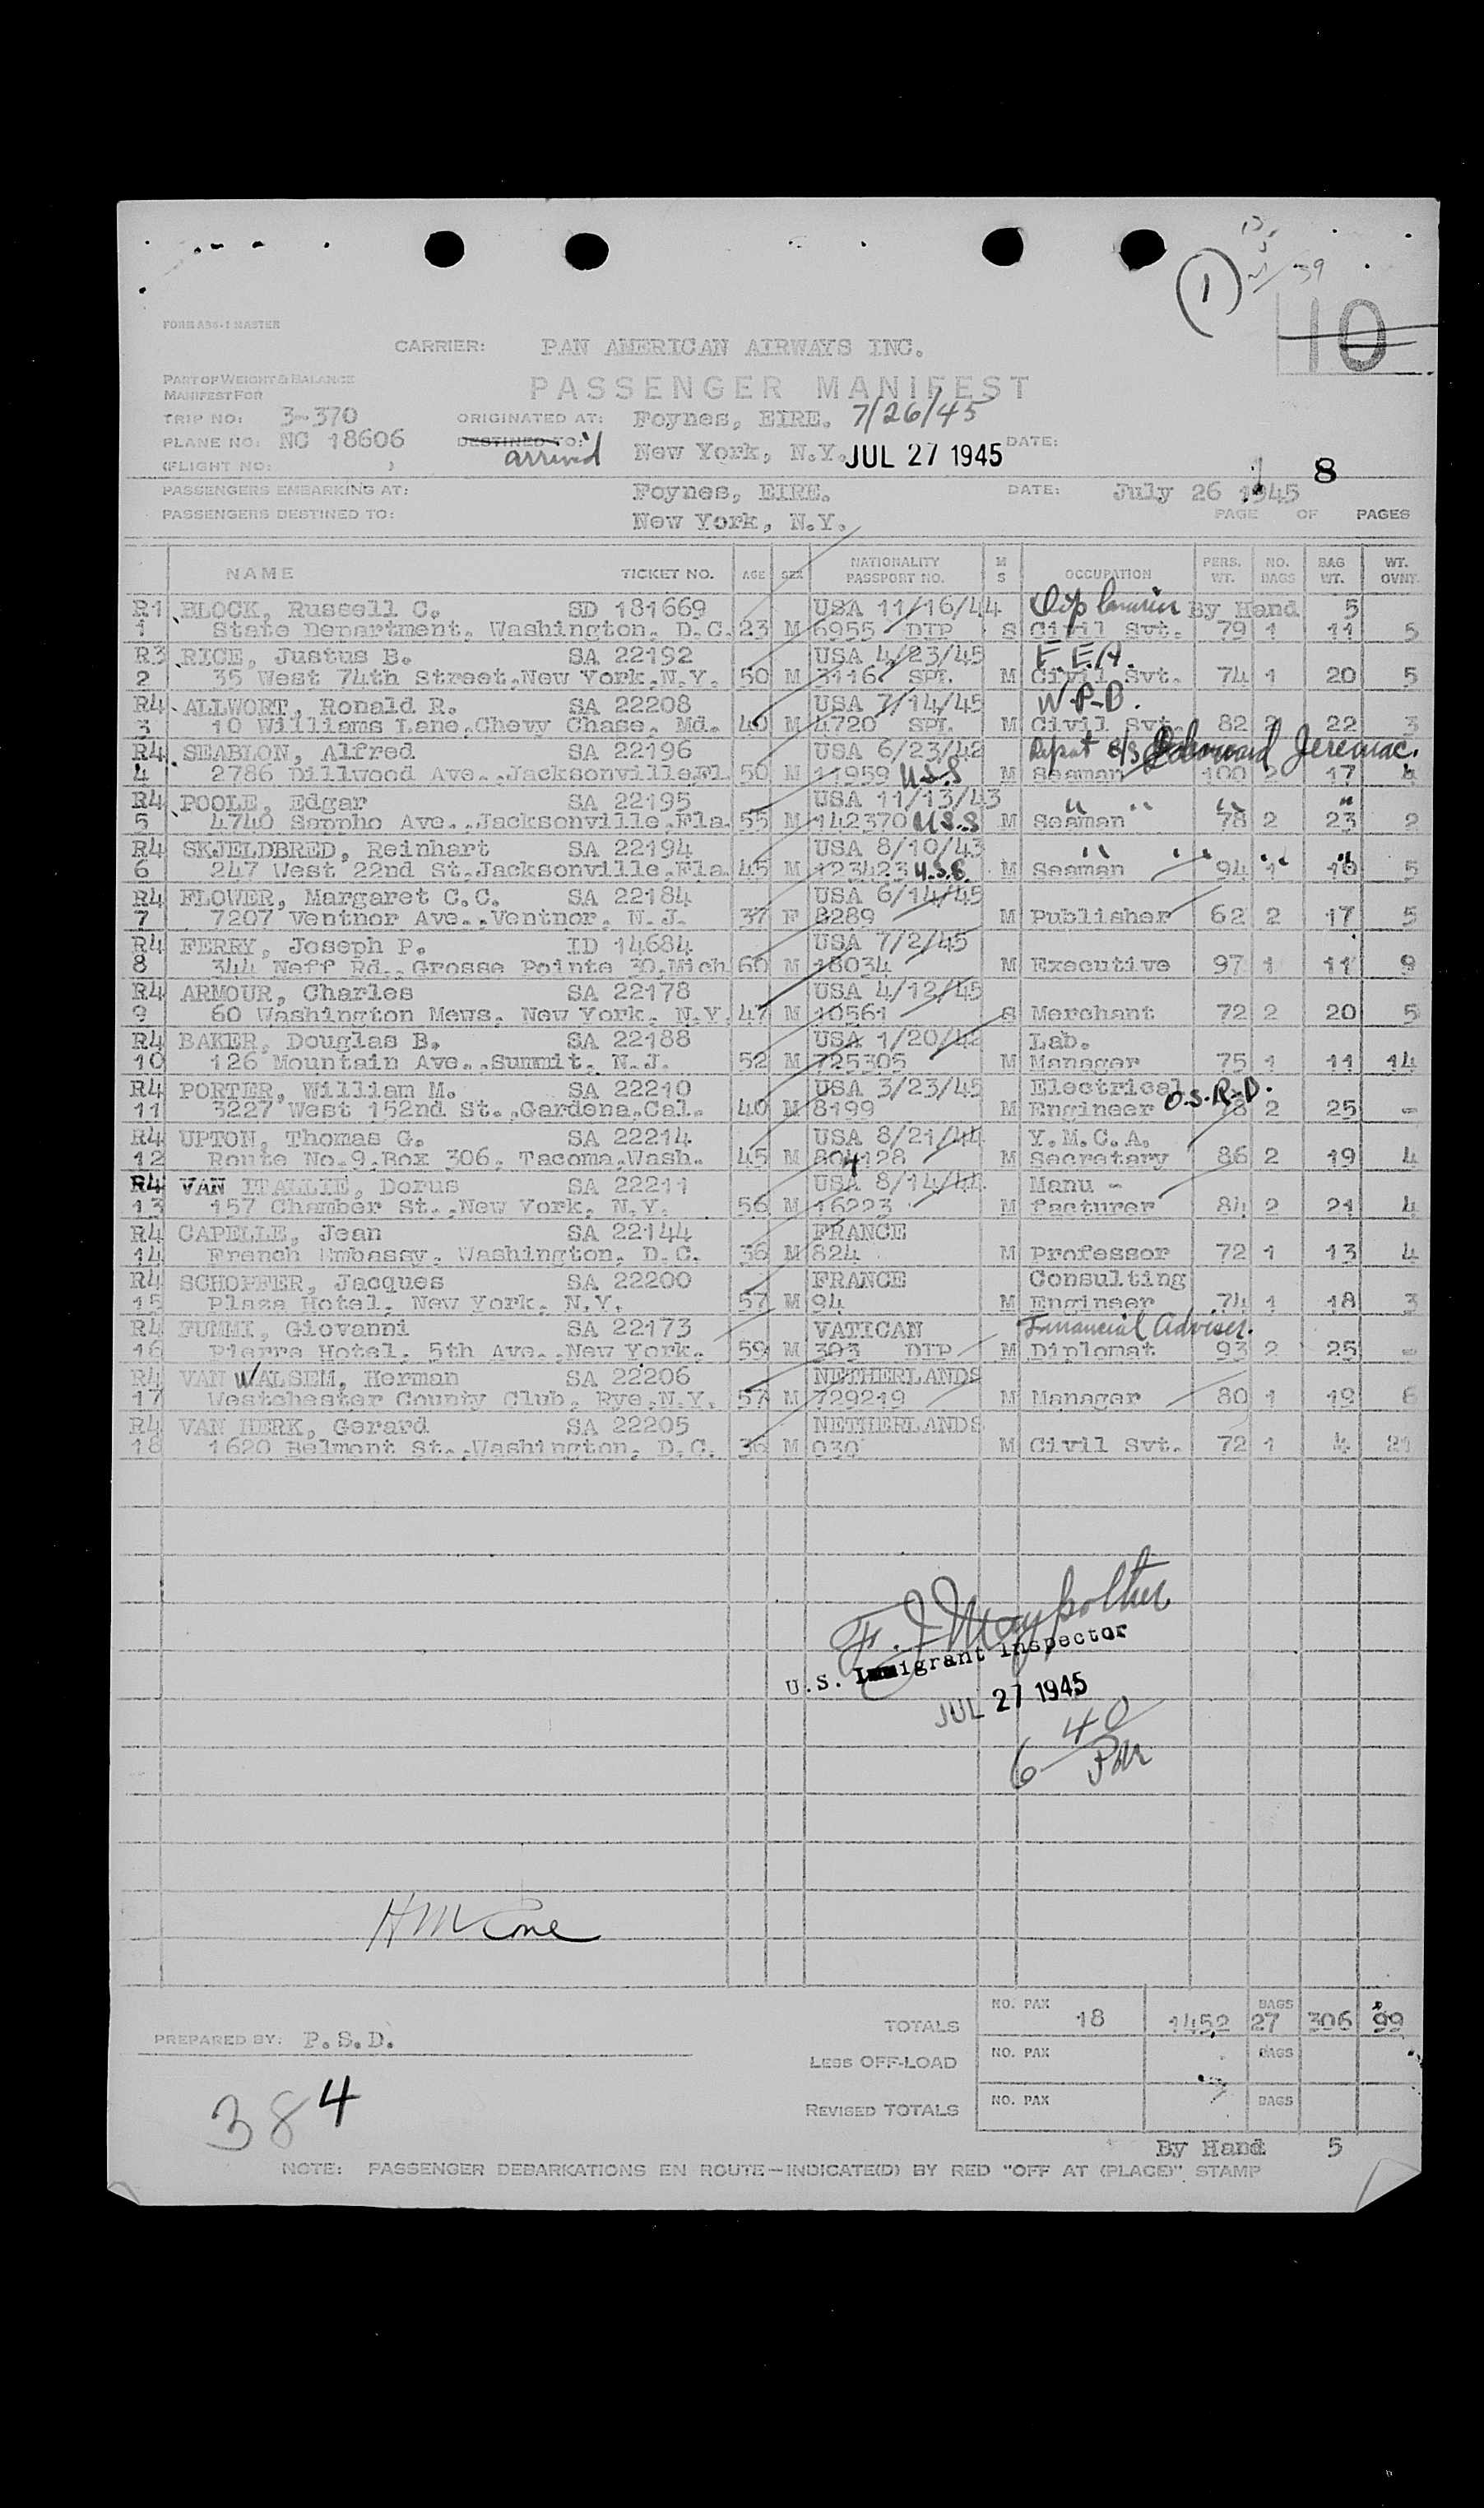 1 39
10
FORM A96-1 MASTER
CARRIER: PAN AMERICAN AIRWAYS INC.
PART OF WEIGHT & BALANCE
MANIFEST FOR
PASSENGER MANIFEST
TRIP NO: 3-370 ORIGINATED AT: Foynes, EIRE. 7/26/45
PLANE NO: NC 18606 DESTINED TO: arrived New York, N.Y. JUL 27 1945 DATE:
(FLIGHT NO: )
1 8
PASSENGERS EMBARKING AT: Foynes, EIRE. DATE: July 26 1945
PASSENGERS DESTINED TO: New York, N.Y. PAGE OF PAGES
NAME TICKET NO. AGE SEX NATIONALITY PASSPORT NO. M S OCCUPATION PERS. WT. NO. BAGS BAG WT. WT. OVNT.
R1 BLOCK, Russell C. SD 181669 USA 11/16/44 Dip Courier By Hand 5
1 State Department, Washington, D.C. 23 M 6955 DIP S Civil Svt. 79 1 11 5
R3 RICE, Justus B. SA 22192 USA 4/23/45 F.E.A.
2 35 West 74th Street,New York,N.Y. 50 M 3116 SPL M Civil Svt. 74 1 20 5
R4 ALLWORT, Ronald R. SA 22208 USA 7/14/45 W.P.B.
3 10 Williams Lane,Chevy Chase, Md. 40 M 4720 SPL M Civil Svt. 82 2 22 3
R4 SEABLON, Alfred SA 22196 USA 6/23/42 Repat S/S Jeremiac.
4 2786 Dillwood Ave.,Jacksonville,Fl. 50 M 11959 U.S.S M Seaman 100 2 17 4
R4 POOLE, Edgar SA 22195 USA 11/13/43 " " " "
5 4740 Sappho Ave.,Jacksonville,Fla. 55 M 142370 U.S.S M Seaman 78 2 23 2
R4 SKJELDBRED, Reinhart SA 22194 USA 8/10/43 " " " "
6 247 West 22nd St.Jacksonville,Fla. 45 M 123423 U.S.S. M Seaman 94 1 5
R4 FLOWER, Margaret C.C. SA 22184 USA 6/14/45
7 7207 Ventnor Ave.,Ventnor, N.J. 37 F 8289 M Publisher 62 2 17 5
R4 FERRY, Joseph P. ID 14684 USA 7/2/45
8 344 Neff Rd., Grosse Pointe 30,Mich 60 M 18034 M Executive 97 1 11 9
R4 ARMOUR, Charles SA 22178 USA 4/12/45
9 60 Washington Mews, New York, N.Y. 47 M 10561 S Merchant 72 2 20 5
R4 BAKER, Douglas B. SA 22188 USA 1/20/42 Lab.
10 126 Mountain Ave.,Summit, N.J. 52 M 725305 M Manager 75 1 11 14
R4 PORTER, William M. SA 22210 USA 3/23/45 Electrical O.S.R.D.
11 3227 West 152nd St.,Gardena,Cal. 40 M 8199 M Engineer 78 2 25 -
R4 UPTON, Thomas G. SA 22214 USA 8/21/44 Y.M.C.A.
12 Route No.9,Box 306, Tacoma,Wash. 45 M 804128 M Secretary 86 2 19 4
R4 VAN ITALLIE, Dorus SA 22211 USA 8/14/44 Manu -
13 157 Chamber St.,New York, N.Y. 56 M 16223 M facturer 84 2 21 4
R4 CAPELLE, Jean SA 22144 FRANCE
14 French Embassy, Washington, D.C. 36 M 824 M Professor 72 1 13 4
R4 SCHOFFER, Jacques SA 22200 FRANCE Consulting
15 Plaza Hotel, New York, N.Y. 57 M 94 M Engineer 74 1 18 3
R4 FUMMI, Giovanni SA 22173 VATICAN Financial Adviser.
16 Pierre Hotel, 5th Ave.,New York. 59 M 303 DIP M Diplomat 93 2 25 -
R4 VAN WALSEM, Herman SA 22206 NETHERLANDS
17 Westchester County Club, Rye,N.Y. 57 M 729219 M Manager 80 1 19 6
R4 VAN HERK, Gerard SA 22205 NETHERLANDS
18 1620 Belmont St.,Washington, D.C. 36 M 030 M Civil Svt. 72 1 4 21
U.S. Immigrant Inspector
JUL 27 1945
6 40 PM
TOTALS NO. PAX 18 1452 BAGS 27 306 99
PREPARED BY: P.S.D.
LESS OFF-LOAD NO. PAX BAGS
384
REVISED TOTALS NO. PAX BAGS
By Hand 5
NOTE: PASSENGER DEBARKATIONS EN ROUTE—INDICATE(D) BY RED "OFF AT (PLACE)" STAMP